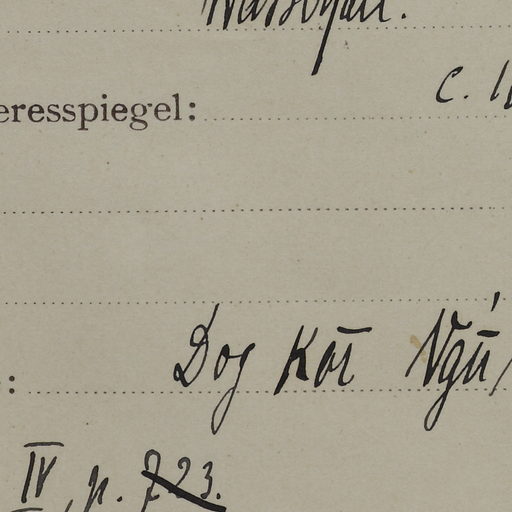 eresspiegel: c.
:
Dog Kōī Ngū
IV, p. 723.